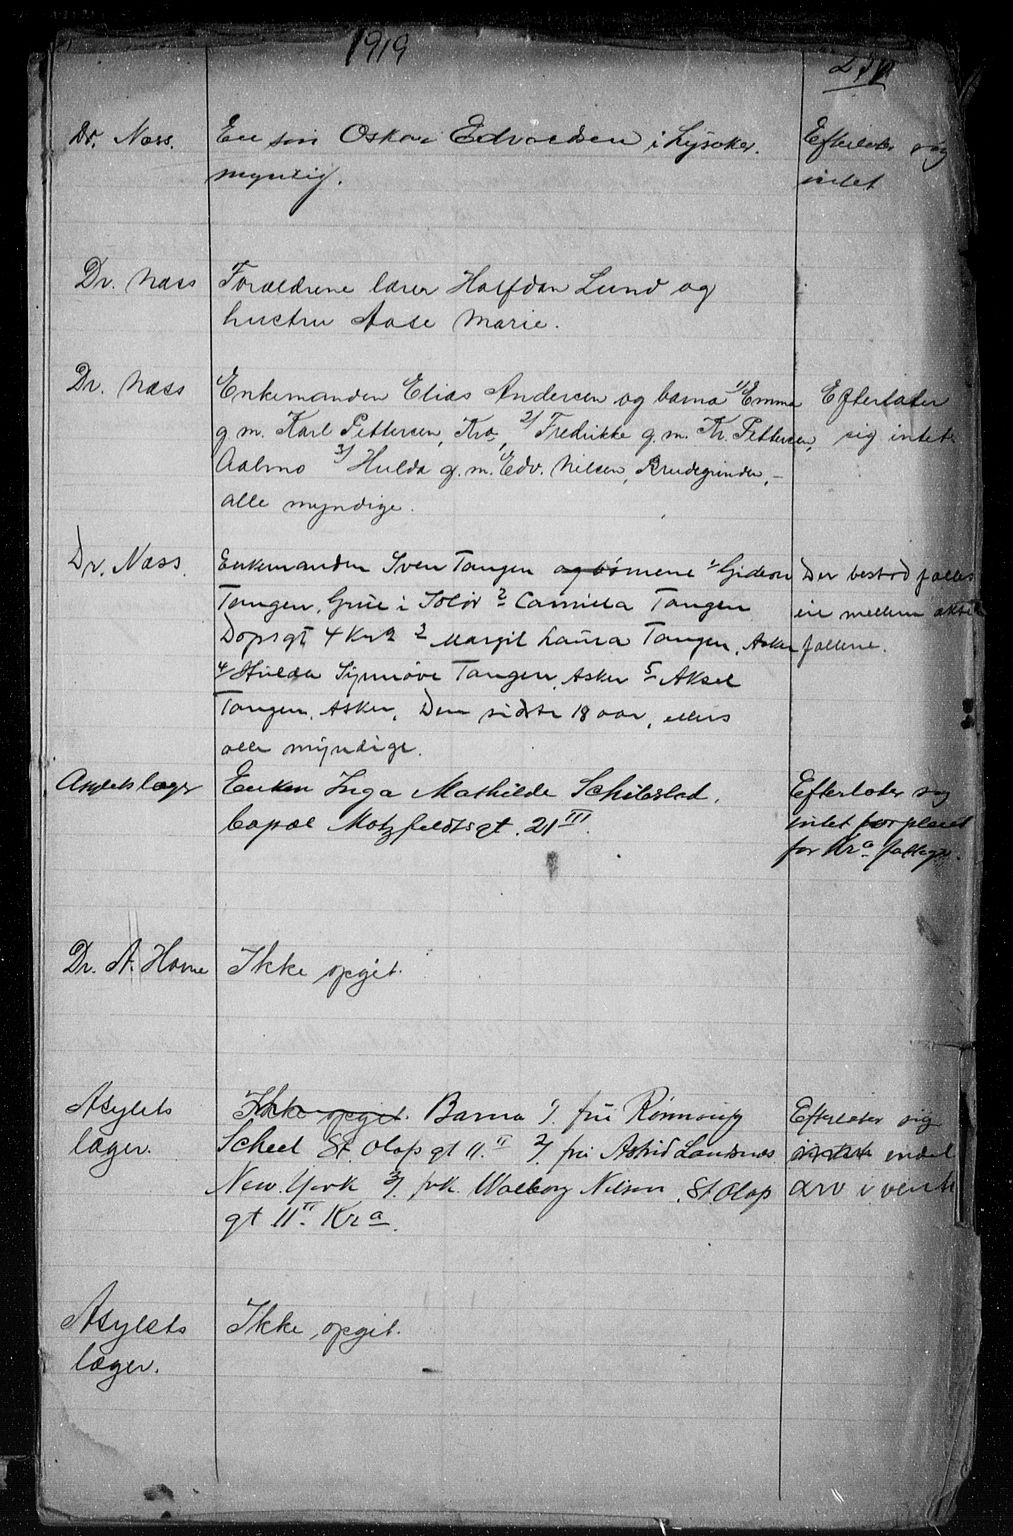 1919
Dr. Næss. En søn Oskar Edvardsen i Lysaker. Efterlater sig
myndig. intet
Dr. Næss Forældrene lærer Halfdan Lund og
hustru Aase Marie.
Dr. Næss Enkemanden Elias Andersen og barna 1/ Emma Efterlater
g. m. Karl Pettersen, Kra, 2/ Fredrikke g. m. Kr. Pettersen, sig intet
3/ Hulda g. m. Edv. Nilsen,
alle myndige.
Dr. Næss. Enkemanden Sven Tangen og børnene 1/ Gideon Der bestod fælles
Tangen, Grue i Solør 2 Camilla Tangen eie mellem ækte
Dopsgt 4 Kra 3 Margit Laura Tangen, Asker fællene.
4/ Hulda Synnøve Tangen, Asker 5 Aksel
Tangen, Asker, Den sidste 18 aar, ellers
alle myndige.
Asylets læge Enken Inga Mathilde Schibstad, Efterlater sig
Motzfeldtsgt. 21 III. intet forpleiet
for Kra fattigv.
Dr. A. Horne Ikke opgit.
Asylets Ikke opgit. Barna 1/. fru Rønnaug Efterlater sig
læger. Scheel St Olafs gt 11. II 2/. fru Astrid Landsnæs intet endel
New. York 3/. frk. Walborg Nilsen, St. Olafs arv i vente
gt 11 II. Kra.
Asylets Ikke opgit.
læger.